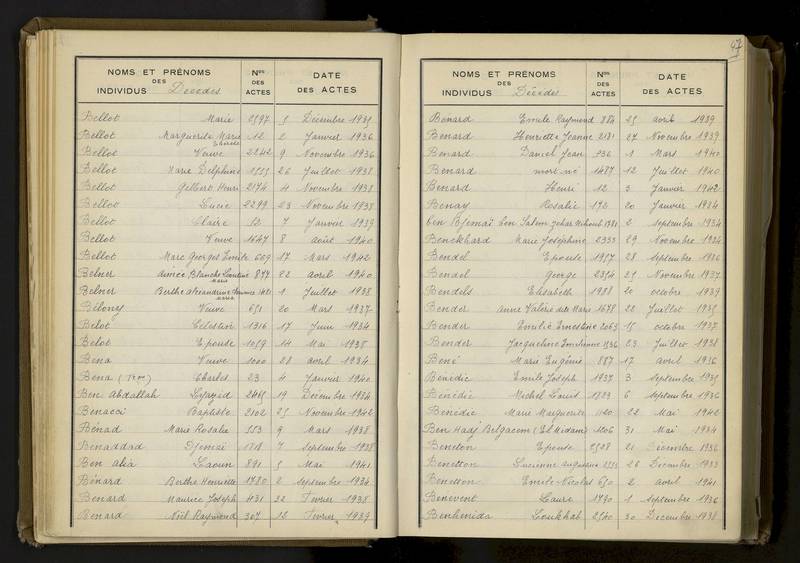 NOMS ET PRÉNOMS
DES
INDIVIDUS Décédés
Nos
DES
ACTES
DATE
DES ACTES
Bellot Marie 2597 5 Décembre 1935
Bellot Marguerite Marie 12 2 Janvier 1936
Bellot Veuve 2242 9 Novembre 1936
Bellot Marie Delphine 1555 26 Juillet 1938
Bellot Gilbert Henri 2174 4 Novembre 1938
Bellot Lucie 2299 23 Novembre 1938
Bellot Claire 12 7 Janvier 1939
Bellot Veuve 1647 8 août 1940
Bellot Marc Georges Emile 609 17 Mars 1942
Belner Aimée Blanche 877 22 avril 1940
Belner Berthe Alexandrine 1 Juillet 1938
Bélony Veuve 651 20 Mars 1937
Belot Célestin 1316 17 Juin 1934
Belot Epouse 1059 14 Mai 1938
Bena Veuve 1000 28 avril 1934
Bena Charles 23 4 Janvier 1940
Ben Abdallah 2465 19 Décembre 1934
Benacci Baptiste 2102 25 Novembre 1942
Bénad Marie Rosalie 553 9 Mars 1938
Benaddad Djemaï 7 Septembre 1938
Ben alia Laoun 891 5 Mai 1941
Bénard Berthe Henriette 1780 2 Septembre 1934
Benard Maurice Joseph 431 22 Février 1938
Benard Noël Raymond 307 12 Février 1939
47
NOMS ET PRÉNOMS
DES
INDIVIDUS Décédés
Nos
DES
ACTES
DATE
DES ACTES
Benard Emile Raymond 884 25 avril 1939
Benard Henriette Jeanne 2181 27 Novembre 1939
Benard Daniel Jean 536 1 Mars 1940
Benard mort né 1487 12 Juillet 1940
Benard Henri 12 3 Janvier 1942
Benay Rosalie 172 20 Janvier 1934
ben Djemaï ben Salem 1781 2 Septembre 1934
Benckhard Marie Joséphine 2333 29 Novembre 1934
Bendel Epouse 1957 28 Septembre 1936
Bendel George 2354 25 Novembre 1937
Bendels Elisabeth 1988 20 octobre 1939
Bender Anne Valérie 1678 22 Juillet 1935
Bender Emilie Ernestine 2063 15 octobre 1937
Bender Jacqueline 1536 23 Juillet 1938
Bené Marie Eugénie 887 17 avril 1936
Bénédic Emile Joseph 1937 3 Septembre 1935
Bénédic Michel Louis 1823 6 Septembre 1936
Bénédic Marie Marguerite 1120 22 Mai 1942
Ben Hadj Belgacem (El Midam) 1206 31 Mai 1934
Beneton Epouse 2528 21 Décembre 1936
Benetton Lucienne 26 Décembre 1933
Benetton Emile Nicolas 650 2 avril 1941
Benevent Laure 1790 1 Septembre 1936
Benhenida 2540 30 Décembre 1938